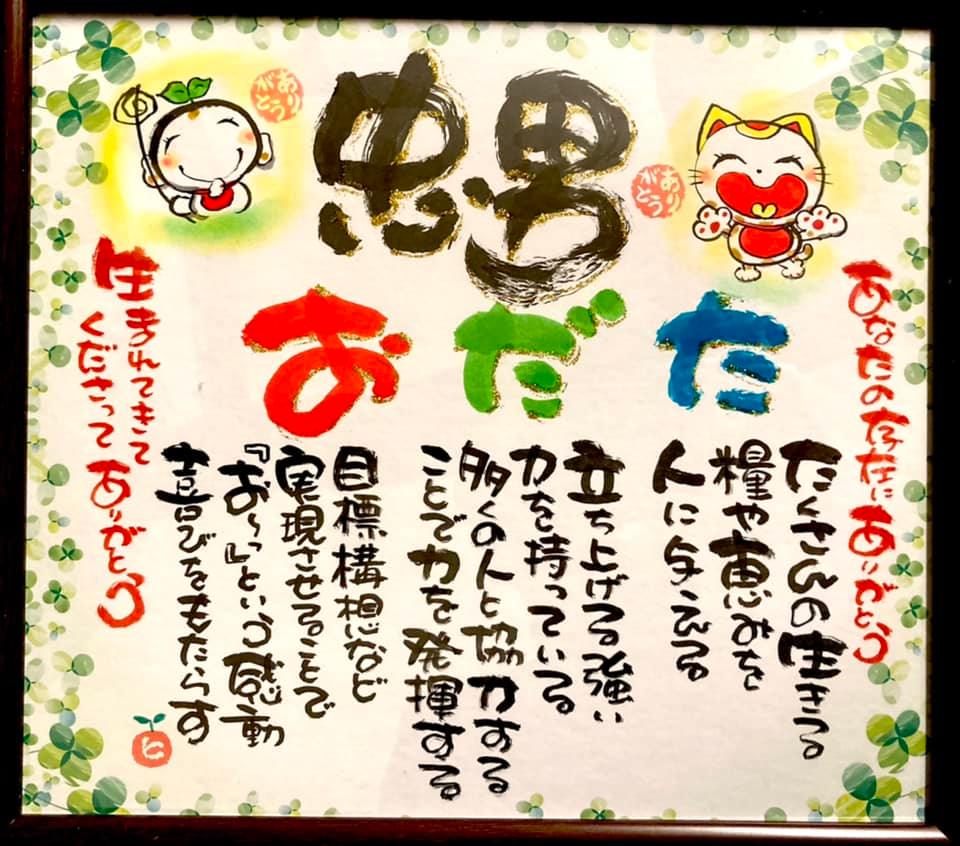 忠男
ありがとう
ありがとう
あなたの存在にありがとう
た
だ
お
たくさんの生きる
糧や恵みを
人に与える
立ち上げる強い
力を持っている
多くの人と協力する
ことで力を発揮する
目標構想など
実現させることで
『お〜っ』という感動
喜びをもたらす
生まれてきて
くださって ありがとう